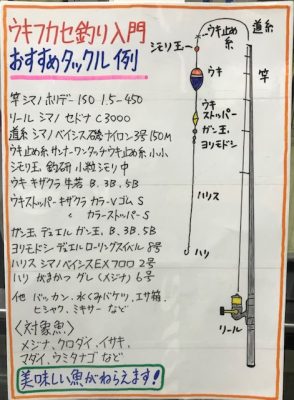 ウキフカセ釣り入門
おすすめタックル例
竿 シマノ ホリデーISO 1.5-450
リール シマノ セドナ C3000
道糸 シマノ ベイシス磯 ナイロン3号 150M
ウキ止め糸 サンナーワンタッチウキ止め糸 小小
シモリ玉 釣研 小粒シモリ 中
ウキ キザクラ 牛若 B、3B、5B
ウキストッパー キザクラ カラーVゴム S
カラーストッパー S
ガン玉 デュエル ガン玉、B、3B、5B
ヨリモドシ デュエル ローリングスイベル 8号
ハリス シマノ ベイシスEXフロロ 2号
ハリ がまかつ グレ(メジナ) 6号
他 バッカン、水くみバケツ、エサ箱、
ヒシャク、ミキサー など
<対象魚>
メジナ、クロダイ、イサキ、
マダイ、ウミタナゴ など
美味しい魚がねらえます!
ウキ止め糸
道糸
シモリ玉
竿
ウキ
ウキストッパー
ガン玉
ヨリモドシ
ハリス
ハリ
リール